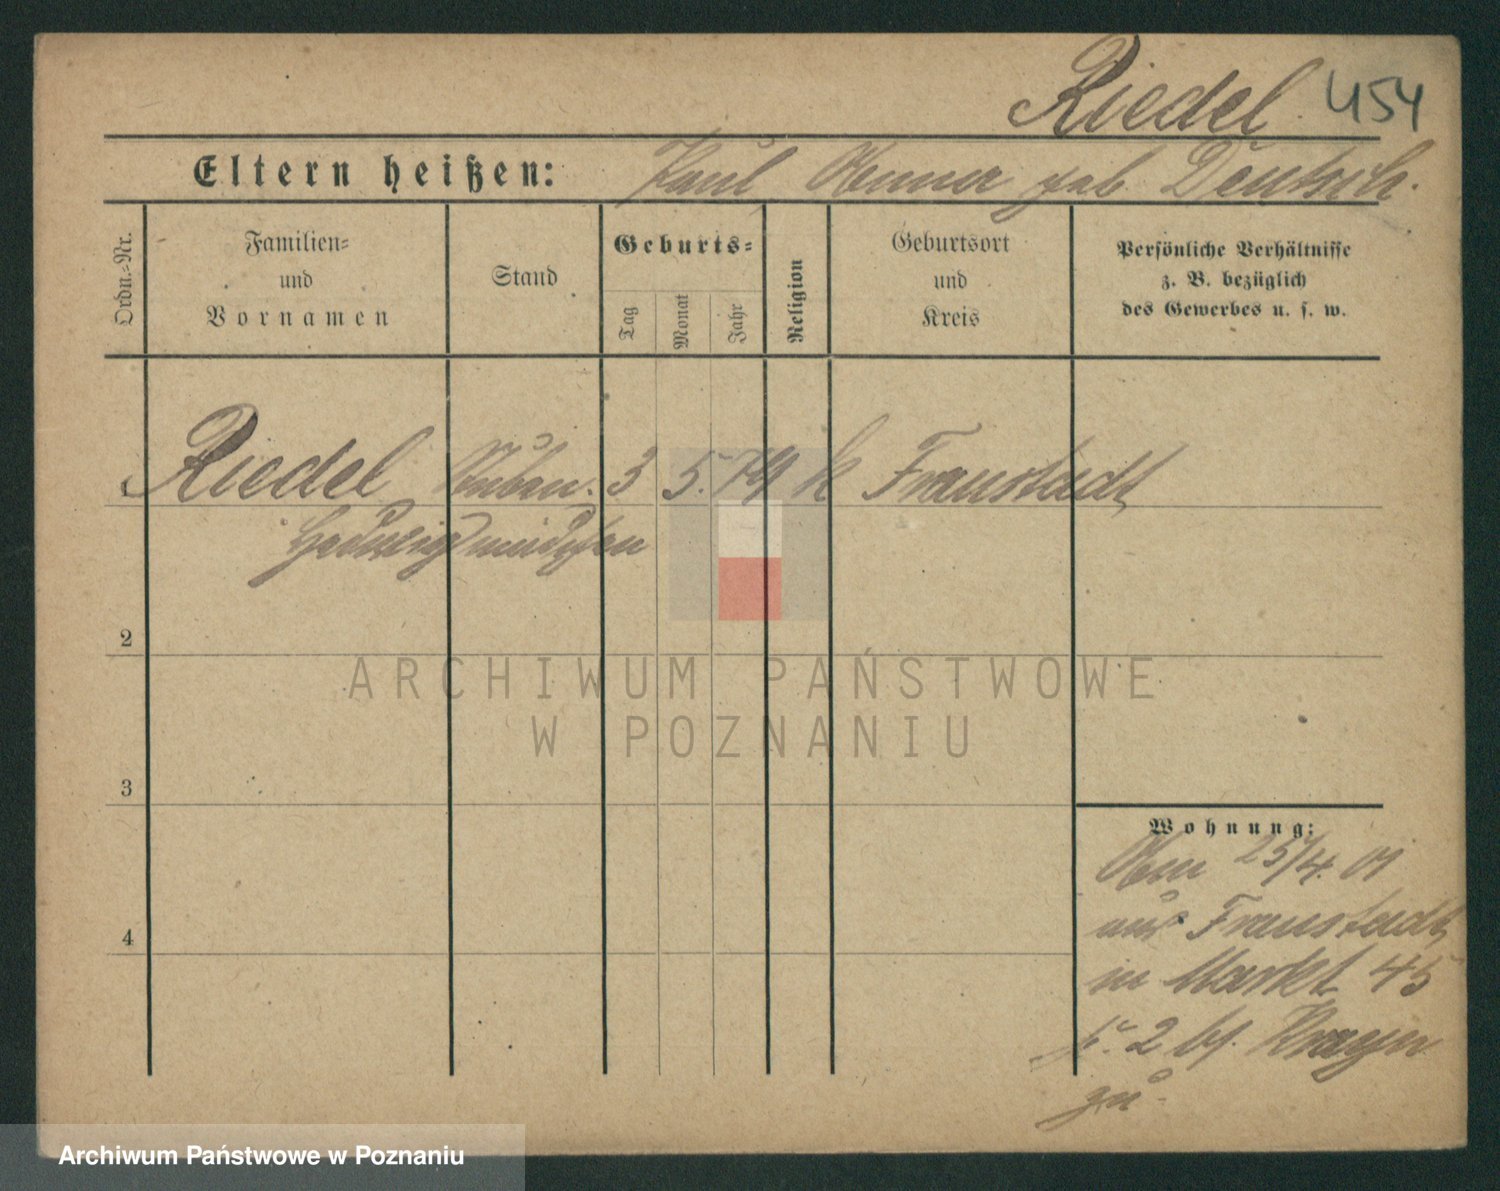 Riedel 454
Eltern heißen: Paul Anna geb Deutsch.
Ordn.-Nr.
Familien=
und
Vornamen
Stand
Geburts=
Tag
Monat
Jahr
Religion
Geburtsort
und
Kreis
Persönliche Verhältnisse
z. B. bezüglich
des Gewerbes u. s. w.
1 Riedel 3 5. 79 k Fraustadt
Hedwig mädchen
2
3
4
Wohnung:
25/4. 01
aus Fraustadt
in Markt 45
2 bf.
zu.
ARCHIWUM PAŃSTWOWE
W POZNANIU
Archiwum Państwowe w Poznaniu